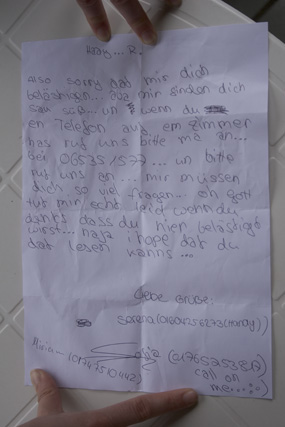 Hallöy... R.
also sorry dat mir dich
belästigen... aba mir finden dich
sau süß... un wenn du
en Telefon auf em Zimmer
has ruf uns bitte ma an...
Bei 06535 1577 ... un bitte
ruf uns an ... mir müssen
dich so viel fragen... oh gott
tut mir echt leid wenn du
denks dass du hier belästigt
wirst... naja i hope dat du
dat lesen kanns ...
liebe Grüße:
Serena (01604256273 (Handy))
call on
me...